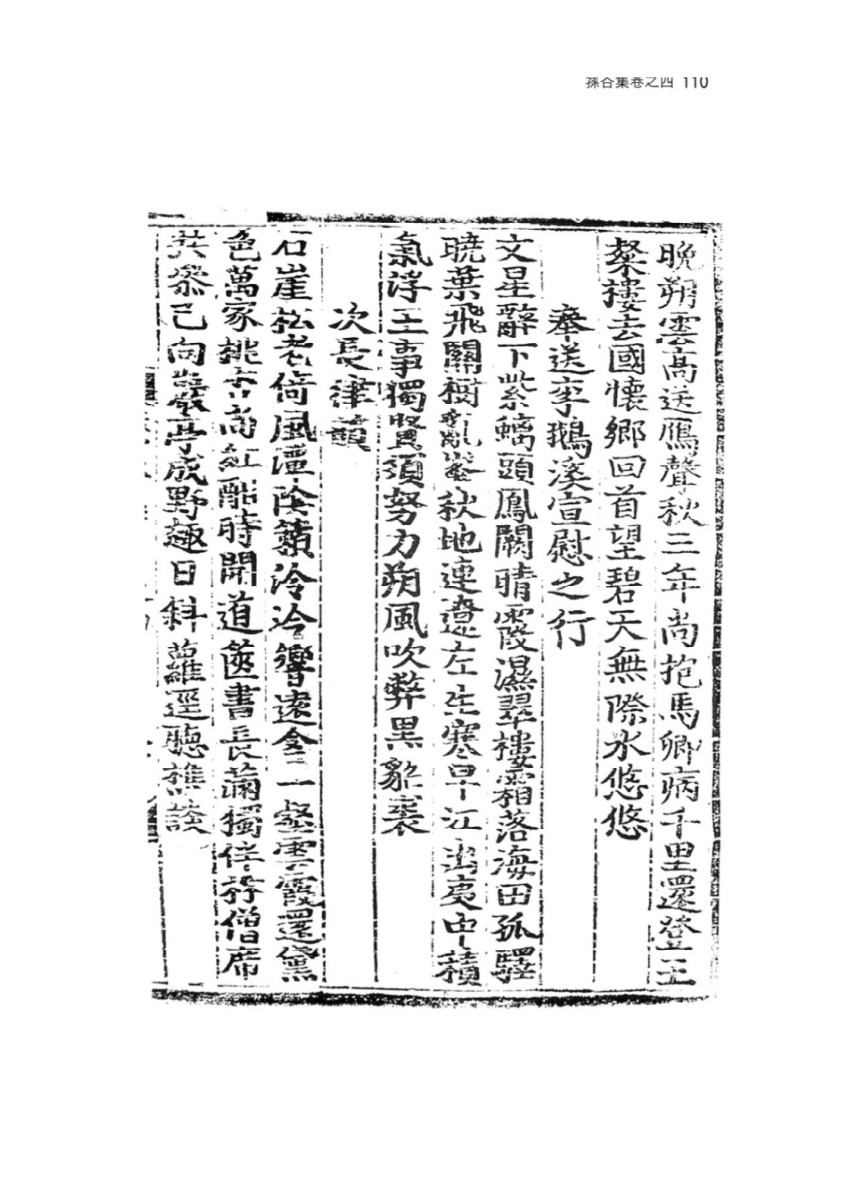 孫谷集卷之四 110
晩朔雲高送鴈聲秋三年尚抱馬卿病千里還登王
粲樓去國懷鄉回首望碧天無際水悠悠
奉送李鵝溪宣慰之行
文星辭下紫螭頭鳳闕晴霞濕翠樓霜落海田孤驛
曉葉飛關樹亂蛩秋地連遼左生寒早江出夷中積
氣浮王事獨賢須努力朔風吹弊黑貂裘
次長律韻
石崖松老倚風潭陰籟泠泠響遠含一壑雲霞還黛
色萬家桃杏尚紅酣時開道篋書長蠹獨伴莽僧席
共參已向巖亭成野趣日斜蘿逕聽樵談